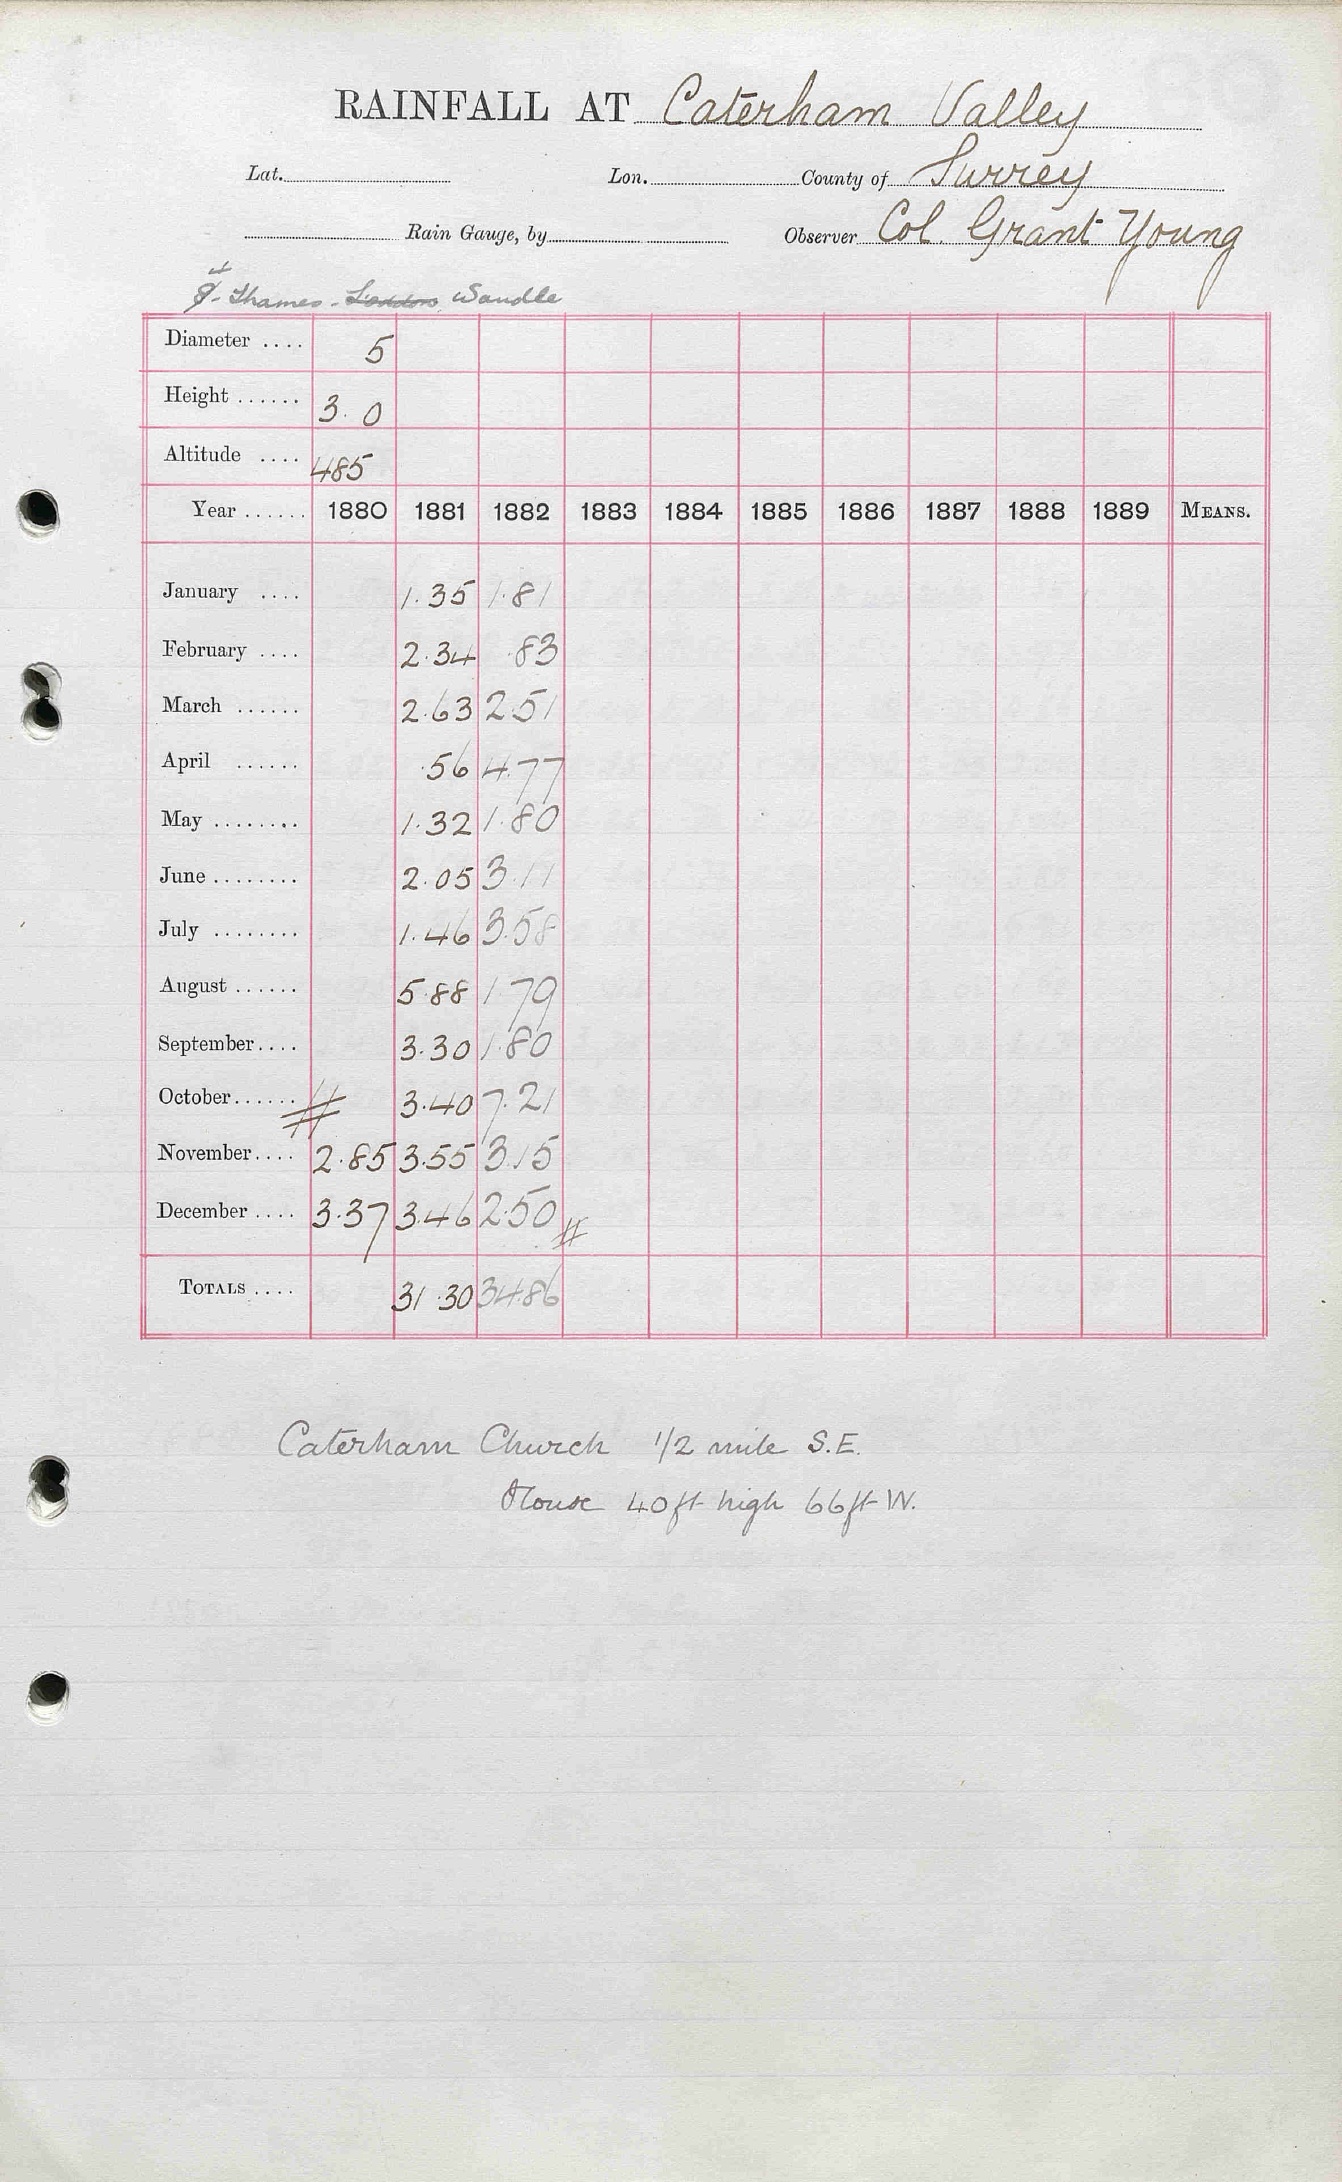 RAINFALL AT Caterham Valley
Lat. Lon. County of Surrey
Rain Gauge, by Observer Col. Grant Young
4
Thames - Loddon Wandle
Diameter .... 5
Height ...... 3. 0
Altitude .... 485
Year ...... 1880 1881 1882 1883 1884 1885 1886 1887 1888 1889 MEANS.
January .... 1.35 1.81
February .... 2.34 .83
March ...... 2.63 2.51
April ...... .56 4.77
May ........ 1.32 1.80
June ........ 2.05 3.11
July ........ 1.46 3.58
August ...... 5.88 1.79
September.... 3.30 1.80
October...... # 3.40 7.21
November.... 2.85 3.55 3.15
December .... 3.37 3.46 2.50 #
TOTALS .... 31.30 34.86
Caterham Church 1/2 mile S.E.
House 40ft high 66ft W.